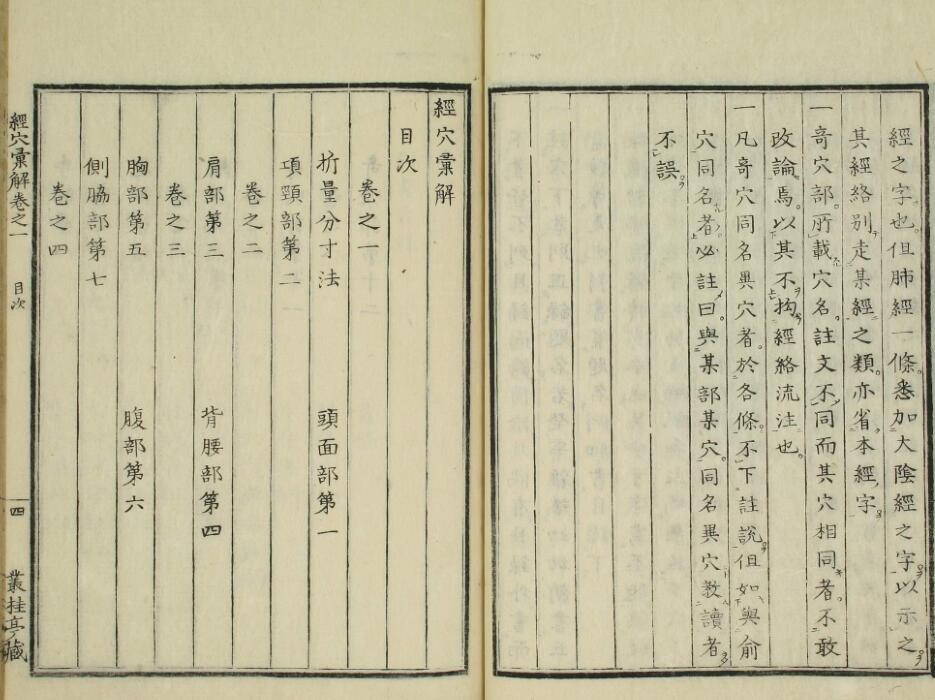 經之字也但肺經一條悉加大陰經之字以示之
其經絡別走某經之類亦省本經字
一奇穴部所載穴名註文不同而其穴相同者不敢
改論焉以其不拘經絡流注也
一凡奇穴同名異穴者於各條不下註說但如與俞
穴同名者必註曰與某部某穴同名異穴教讀者
不誤
經穴彙解
目次
卷之一
折量分寸法 頭面部第一
項頸部第二
卷之二
肩部第三 背腰部第四
卷之三
胸部第五 腹部第六
側脇部第七
卷之四
經穴彙解卷之一 目次 四 叢桂亭藏